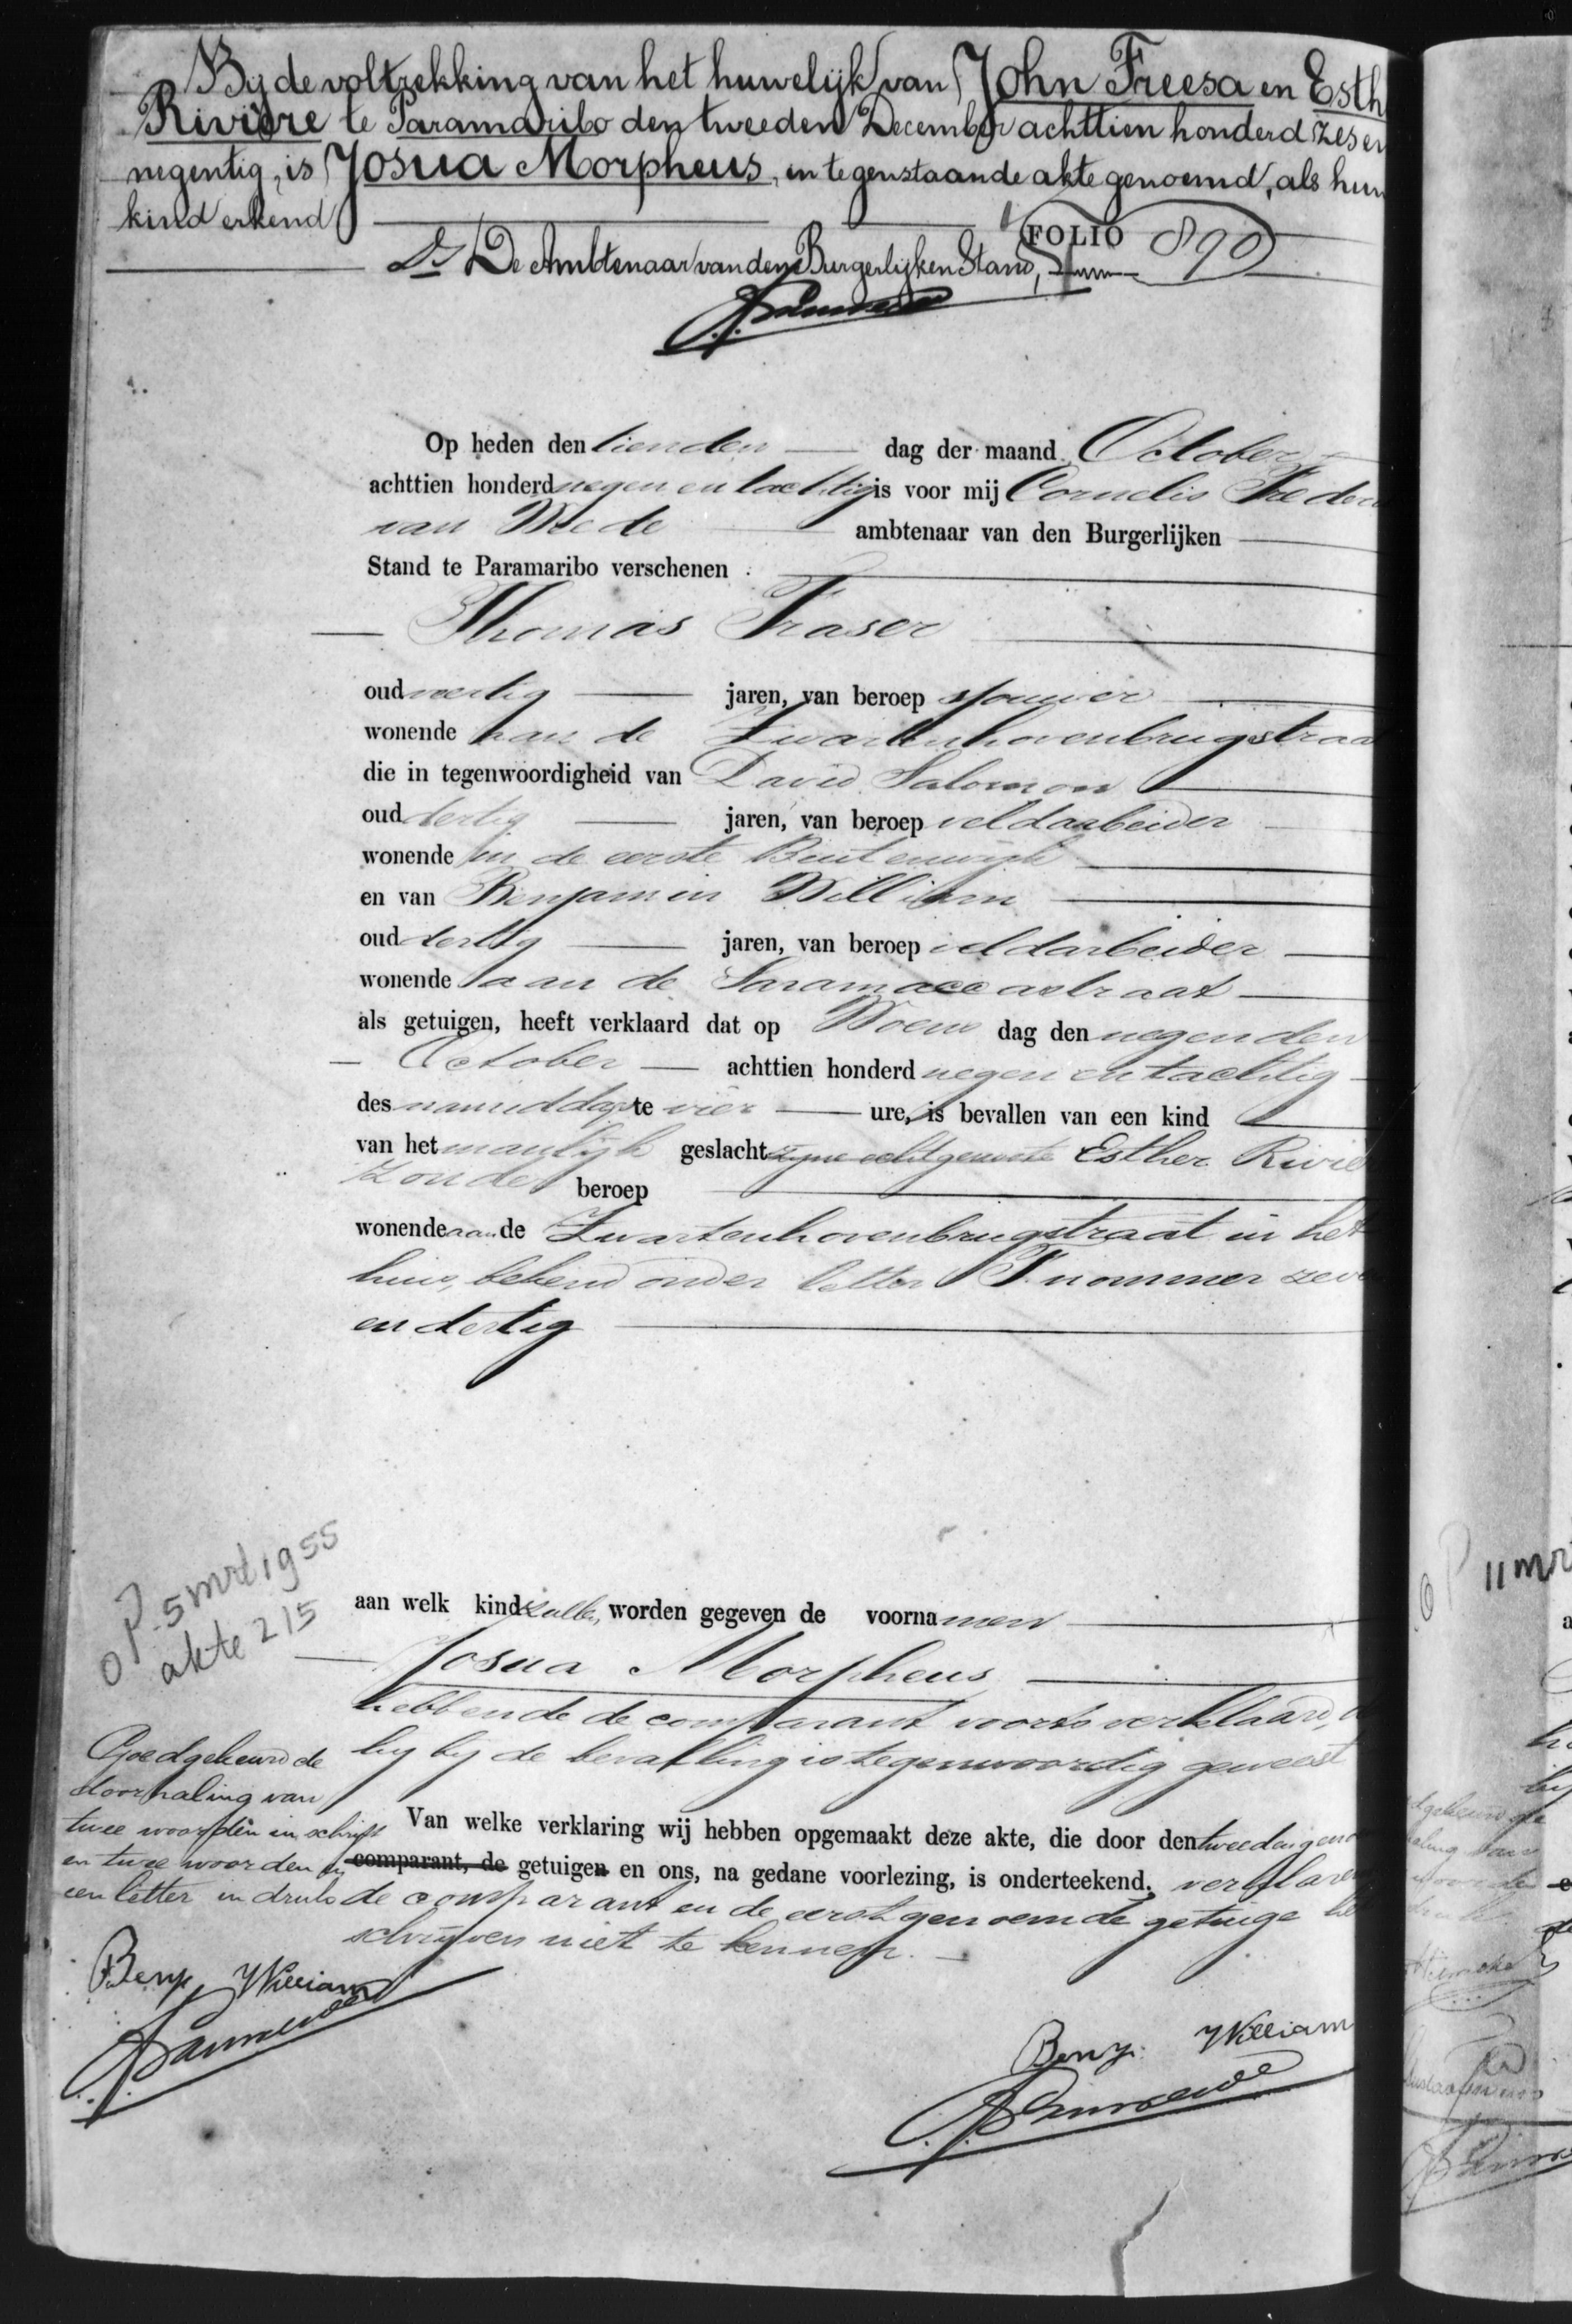 Bij de voltrekking van het huwelijk van John Freesa en Esth
Rivière te Paramaribo den tweeden December achttien honderd zes en
negentig, is Josua Morpheus, in tegenstaande akte genoemd, als hun
kind erkend
De Ambtenaar van den Burgerlijken Stand,
FOLIO 890
Op heden den tienden dag der maand October
achttien honderd negen en tachtig is voor mij Cornelis Frederi
van ambtenaar van den Burgerlijken
Stand te Paramaribo verschenen
Thomas Fraser
oud veertig jaren, van beroep sjouwer
wonende aan de Zwartenhovenbrugstraa
die in tegenwoordigheid van David Salomon
oud dertig jaren, van beroep veldarbeider
wonende in de eerste Buitenwijk
en van Benjamin William
oud dertig jaren, van beroep veldarbeider
wonende aan de Saramaccastraat
als getuigen, heeft verklaard dat op Woens dag den negenden
October achttien honderd negen en tachtig
des namiddags te vier ure, is bevallen van een kind
van het manlijk geslacht zijne echtgenoote Esther Riviè
zonder beroep
wonende aan de Zwartenhovenbrugstraat in het
huis, bekend onder letter F nommer zeve
en dertig
OP 5 mrt 1955
akte 215
aan welk kind zullen worden gegeven de voornamen
Josua Morpheus
hebbende de comparant voorts verklaard, d
hij bij de bevalling is tegenwoordig geweest
Goedgekeurd de
doorhaling van
twee woorden in schrift
en twee woorden en
een letter in druk
Van welke verklaring wij hebben opgemaakt deze akte, die door den tweedengeno
comparant, de getuigen en ons, na gedane voorlezing, is onderteekend. verklaren
de comparant en de eerstgenoemde getuige he
schrijven niet te kennen.
Benj. William
Benj. William
OP 11 mr